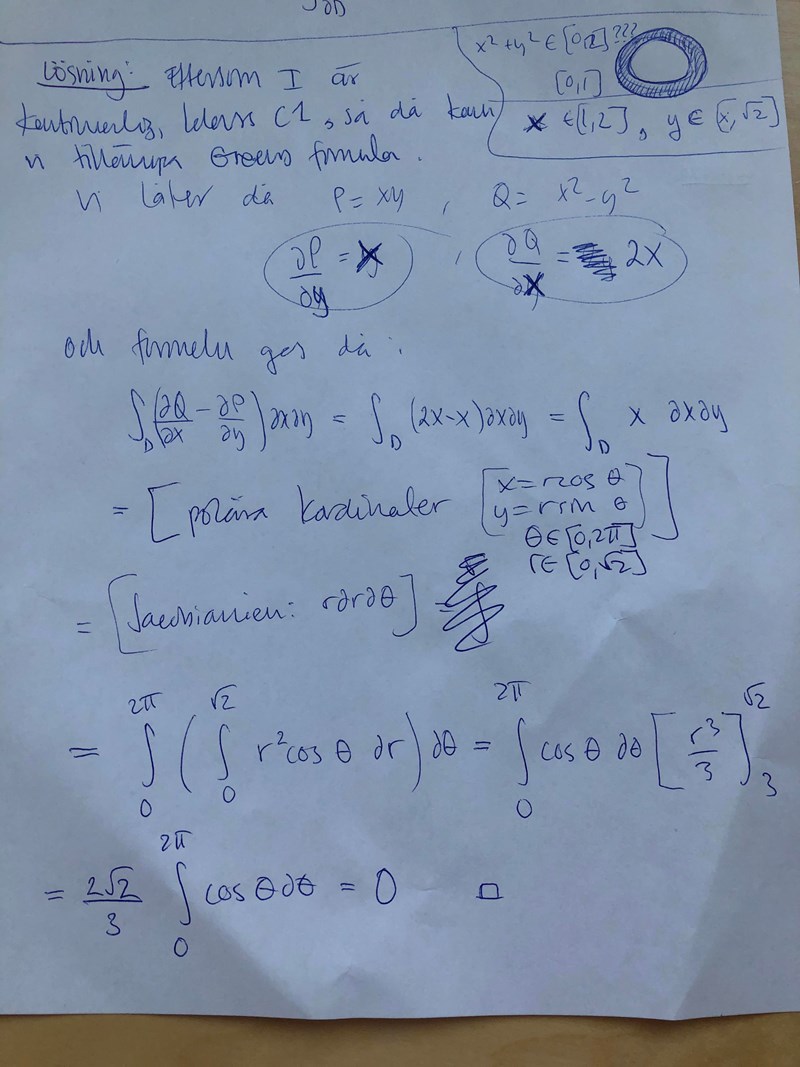 ∫∂D
x²+y² ∈ [0,2]???
[0,1]
x ∈ [1,2], y ∈ [x,√2]
Lösning: Eftersom I är
C1, så då kan
vi tillämpa Greens formula.
Vi låter då P= xy , Q= x²-y²
∂P/∂y = x , ∂Q/∂x = 2x
och formeln ges då :
∫_D (∂Q/∂x - ∂P/∂y) ∂x∂y = ∫_D (2x-x)∂x∂y = ∫_D x ∂x∂y
= [polära kordinater [x=rcos θ
y=rsin θ]]
θ∈[0,2π]
r∈[0,√2]
= [Jacobianien: r∂r∂θ]
= ∫_0^{2π} ( ∫_0^{√2} r²cos θ ∂r) ∂θ = ∫_0^{2π} cos θ ∂θ [r³/3]_3^{√2}
= 2√2/3 ∫_0^{2π} cos θ∂θ = 0 □